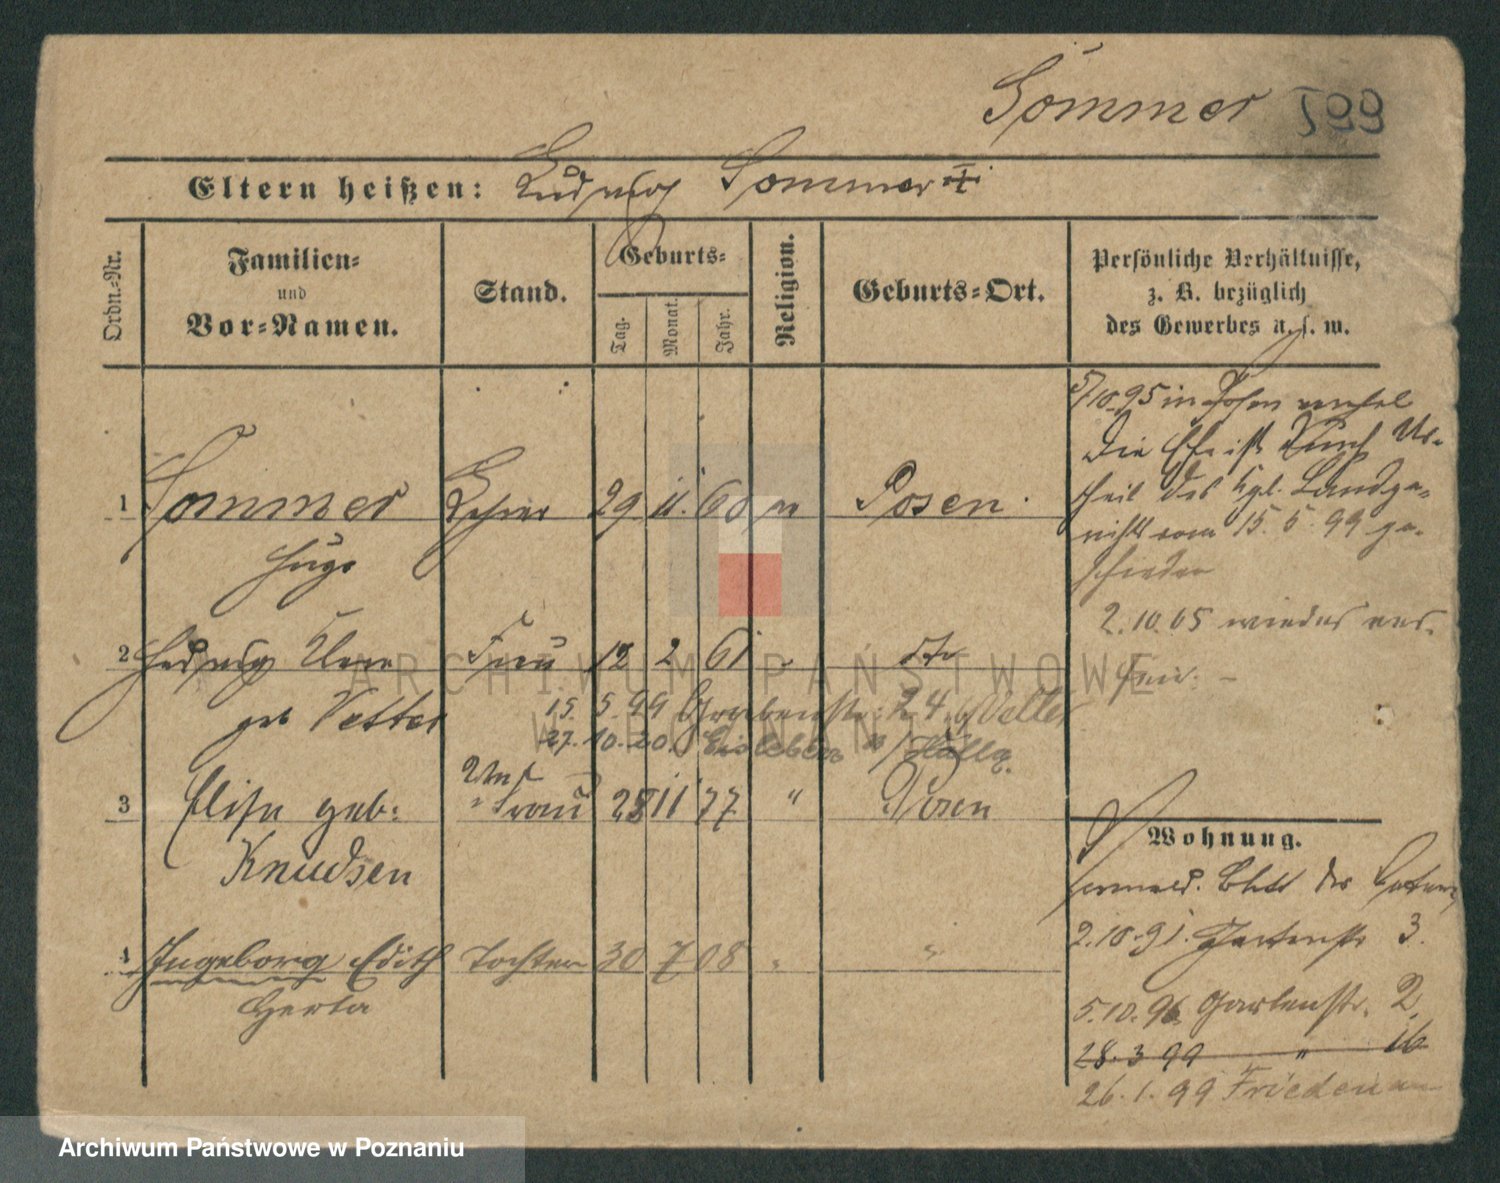 Sommer 599
Eltern heißen: Ludwig Sommer †
Ordn.-Nr.
Familien-
und
Vor-Namen.
Stand.
Geburts-
Tag. Monat. Jahr.
Religion.
Geburts-Ort.
Persönliche Verhältnisse,
z. B. bezüglich
des Gewerbes u. s. w.
5/10.95 in Posen
Die Ehe ist durch Ur-
theil des Kgl. Landge-
richts vom 15.5.99 ge-
schieden
2.10.05 wieder ver-
1 Sommer 29 11. 60 Posen
Hugo
2 Hedwig Frau 12 2 61
geb Vetter 15. 5. 99 Grabenstr. 24 b/Vetter
27. 10. 20. Eisleben b/Halle.
3 Elisa geb: Frau 28 11 77 " Posen
Knudsen
4 Ingeborg Edith Tochter 30 7 08 " "
Herta
Wohnung.
2.10.91. Gartenstr 3.
5.10.96 Gartenstr. 2.
28.3 99 " 16
26.1.99 Friedenau
ARCHIWUM PAŃSTWOWE
W POZNANIU
Archiwum Państwowe w Poznaniu